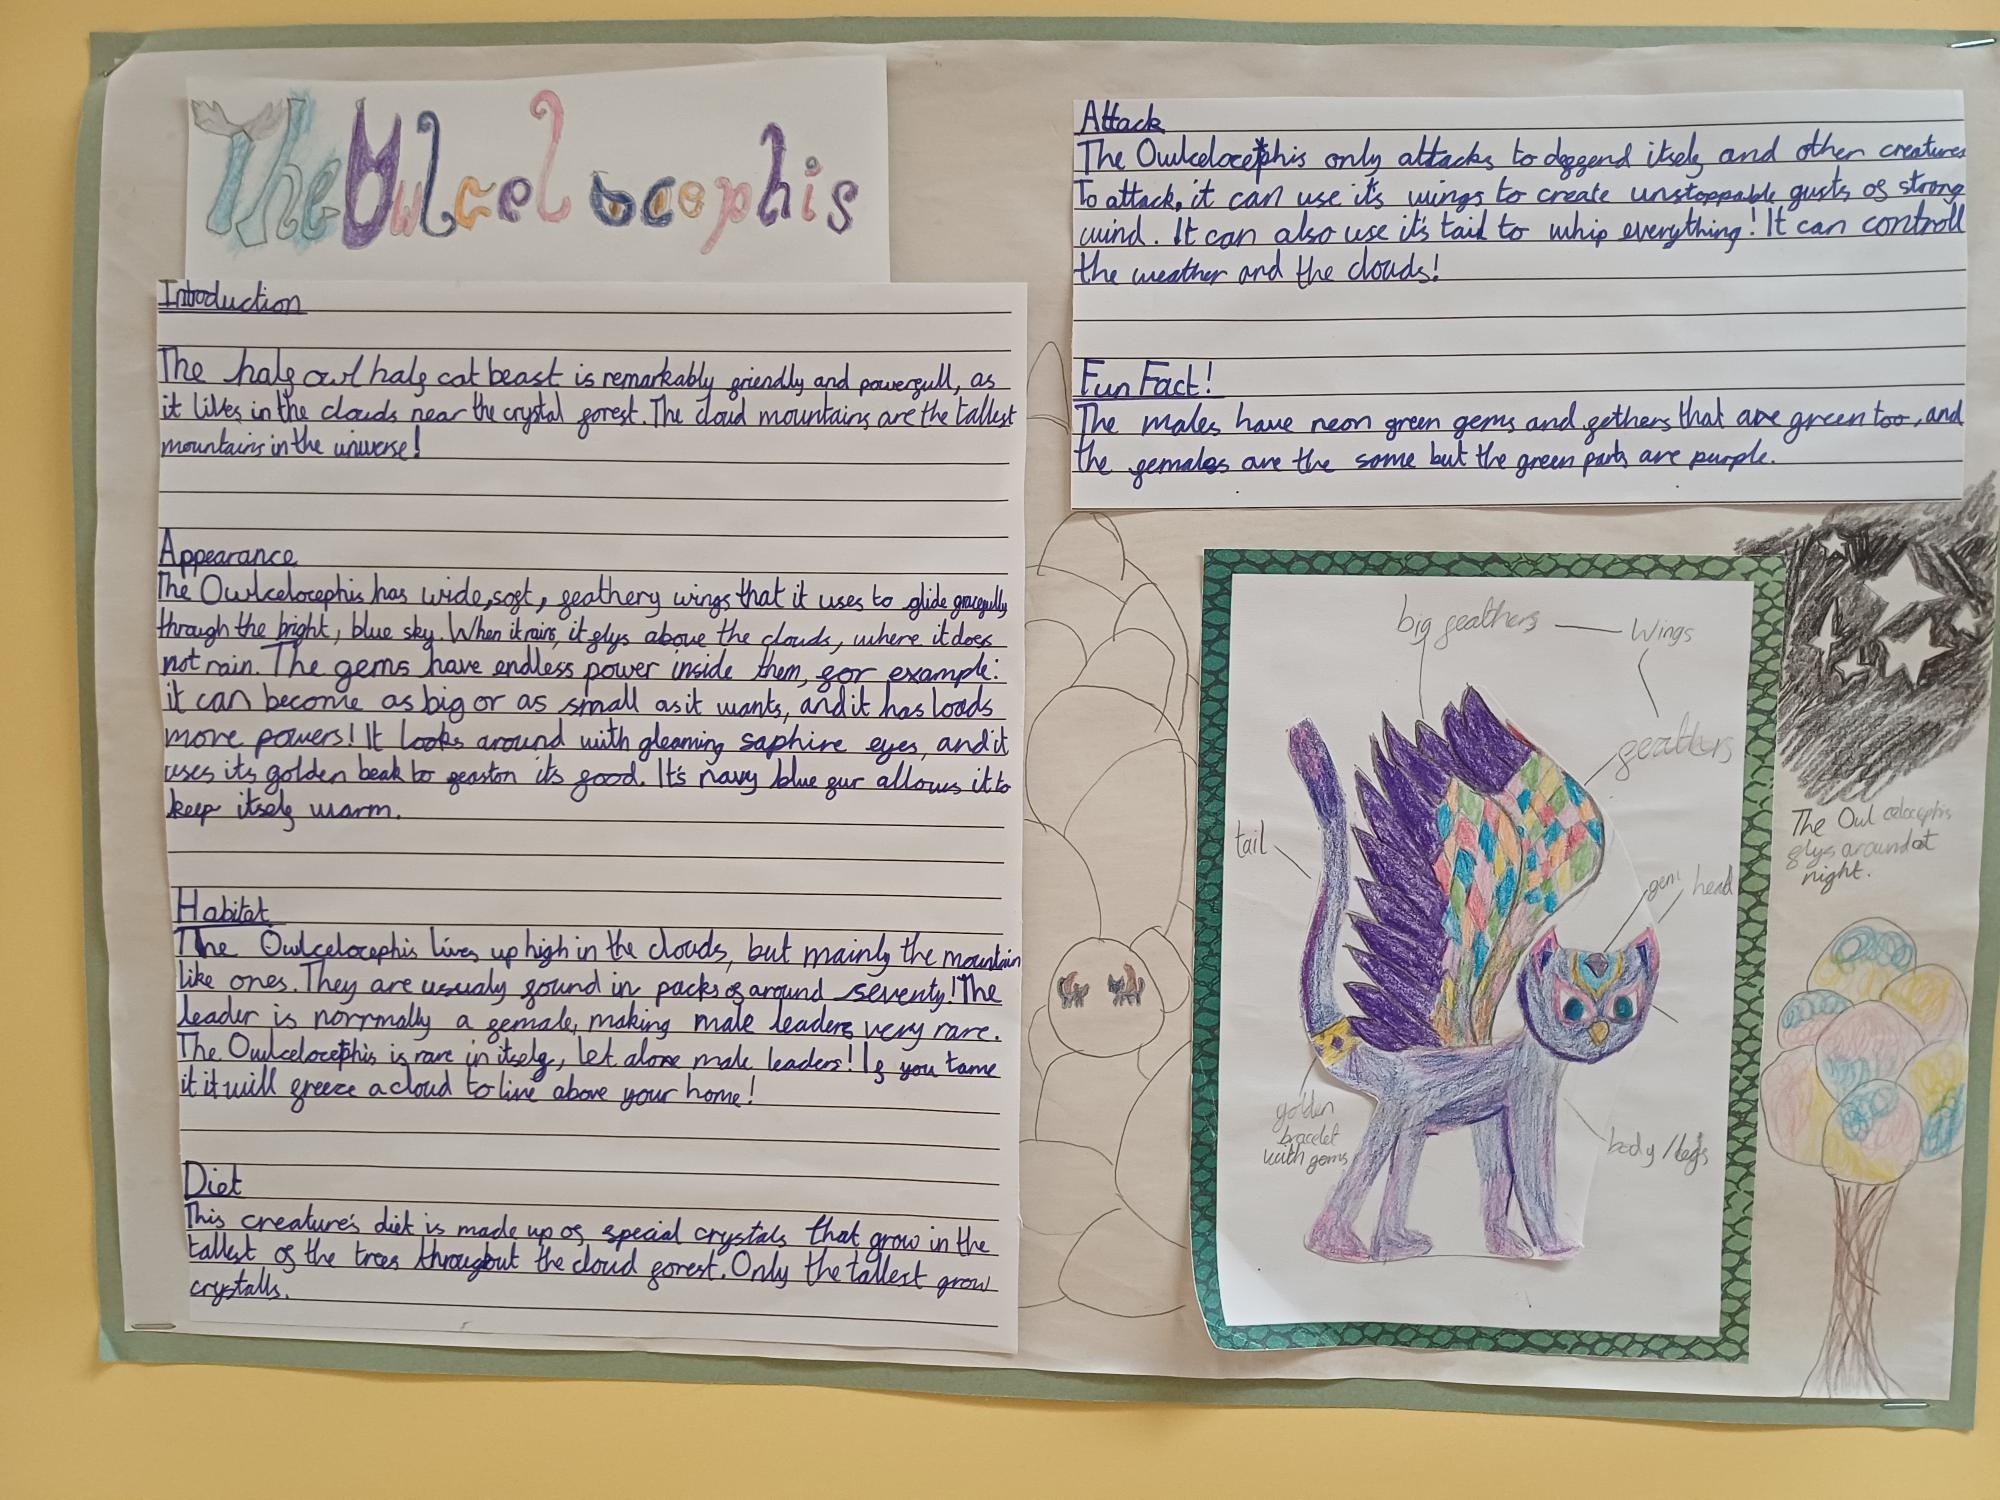 The Owlcelocephis
Introduction
The half owl half cat beast is remarkably friendly and powerfull, as
it lives in the clouds near the crystal forest. The cloud mountains are the tallest
mountains in the universe!
Appearance
The Owlcelocephis has wide, soft, feathery wings that it uses to glide gracefully
through the bright, blue sky. When it rains, it flys above the clouds, where it does
not rain. The gems have endless power inside them, for example:
it can become as big or as small as it wants, and it has loads
more powers! It looks around with gleaming saphire eyes, and it
uses its golden beak to feast on its food. It's navy blue fur allows it to
keep itself warm.
Habitat
The Owlcelocephis lives up high in the clouds, but mainly the mountain
like ones. They are usualy found in packs of around seventy! The
leader is normally a female, making male leaders very rare.
The Owlcelocephis is rare in itself, let alone male leaders! If you tame
it it will freeze a cloud to live above your home!
Diet
This creature's diet is made up of special crystals that grow in the
tallest of the trees throughout the cloud forest. Only the tallest grow
crystalls.
Attack
The Owlcelocephis only attacks to deffend itself and other creatures
To attack, it can use it's wings to create unstoppable gusts of strong
wind. It can also use it's tail to whip everything! It can controll
the weather and the clouds!
Fun Fact!
The males have neon green gems and fethers that are green too, and
the females are the same but the green parts are purple.
big feathers
Wings
feathers
tail
gem
head
golden
bracelet
with gems
body/legs
The Owlcelocephis
flys around at
night.